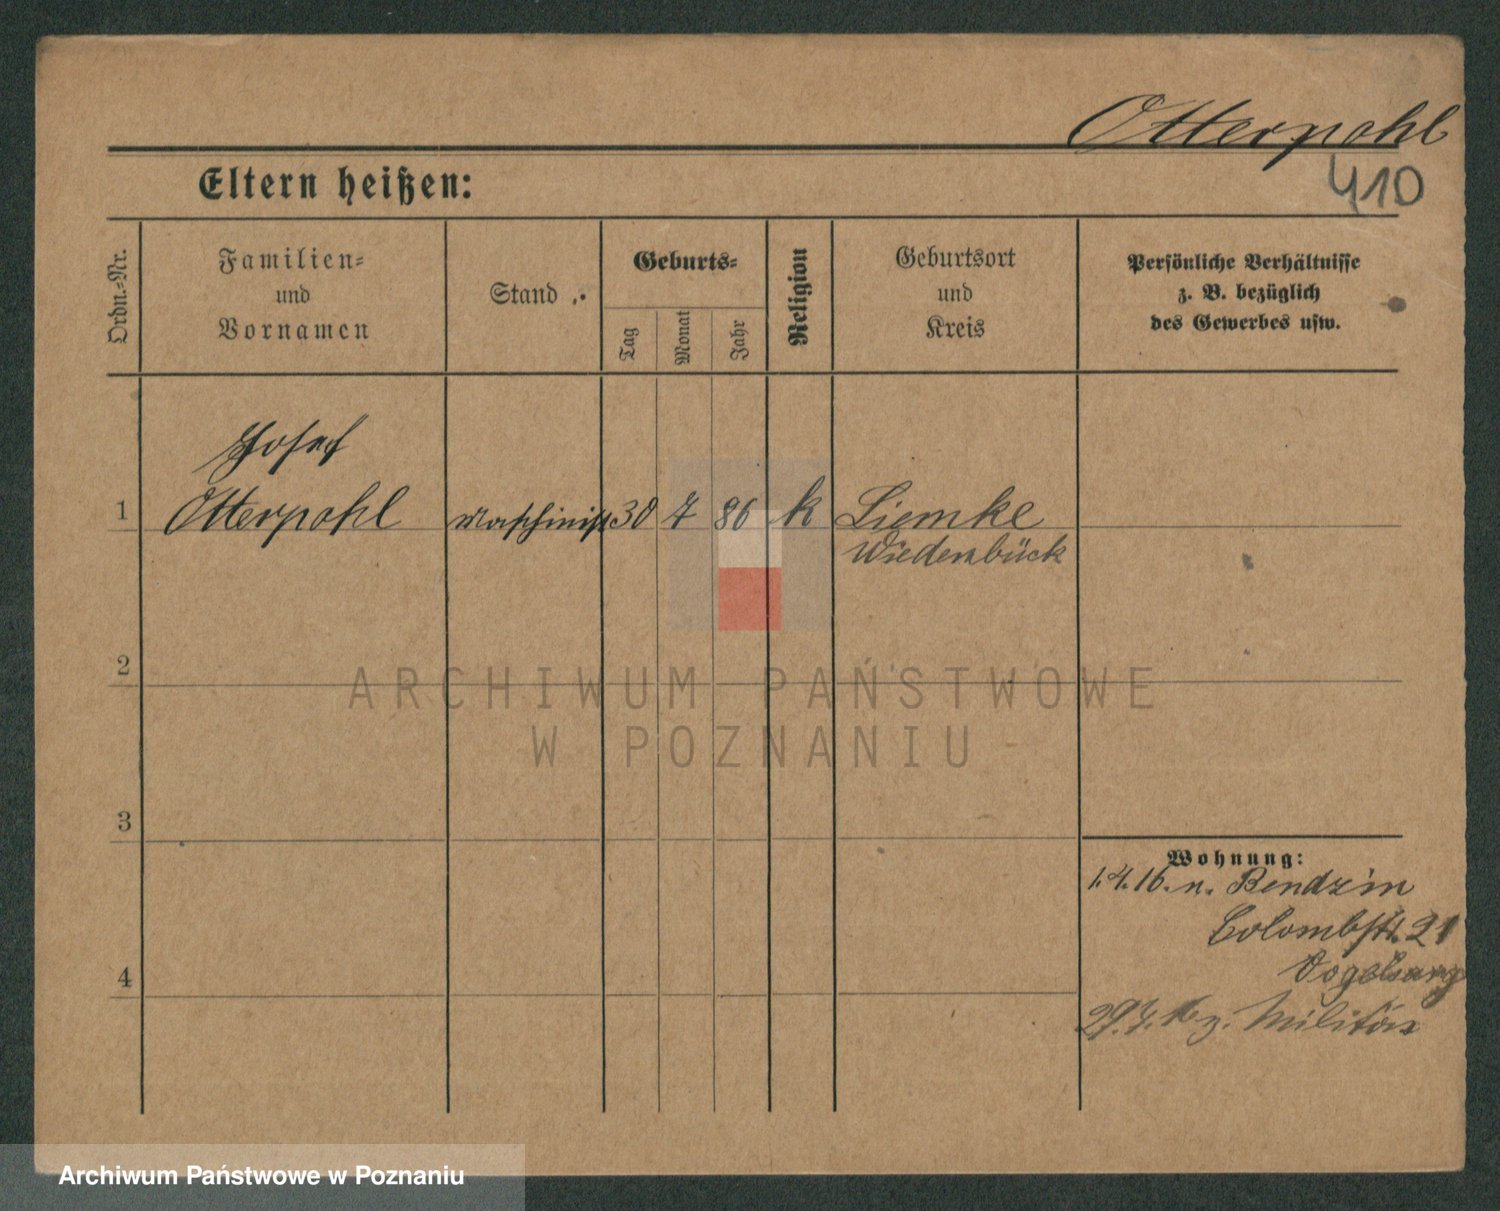 Otterpohl
410
Eltern heißen:
Ordn.-Nr.
Familien-
und
Vornamen
Stand
Geburts-
Tag
Monat
Jahr
Religion
Geburtsort
und
Kreis
Persönliche Verhältnisse
z. B. bezüglich
des Gewerbes usw.
Josef
1 Otterpohl Maschinist 30 7 86 k Liemke
Wiedenbück
2
3
4
Wohnung:
1.4.16. n. Bendzin
Colombstr. 21
Vogelsang
29.7. 16 z. Militär
ARCHIWUM PAŃSTWOWE
W POZNANIU
Archiwum Państwowe w Poznaniu